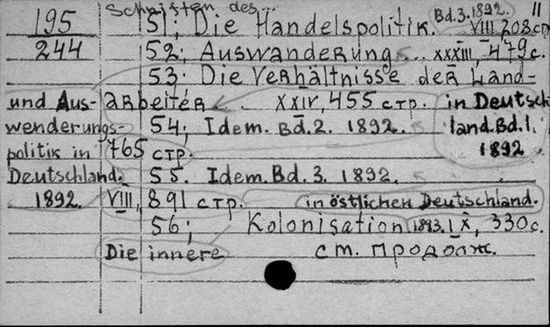 Schriften des...
195 51, Die Handelspolitik. Bd.3.1892. VIII, 208 ст. 11
244 52; Auswanderungs.. XXXIII, 479 с.
53; Die Verhältnisse der Land-
und Aus- arbeiter XXIV, 455 стр. in Deutsch
wenderungs- 54; Idem. Bd. 2. 1892. land. Bd. 1.
politik in 765 стр. 1892
Deutschland. 55. Idem. Bd. 3. 1892.
1892. VIII, 891 стр. in östlichen Deutschland.
56; Kolonisation 1893. IX, 330 с.
Die innere см. продолж.